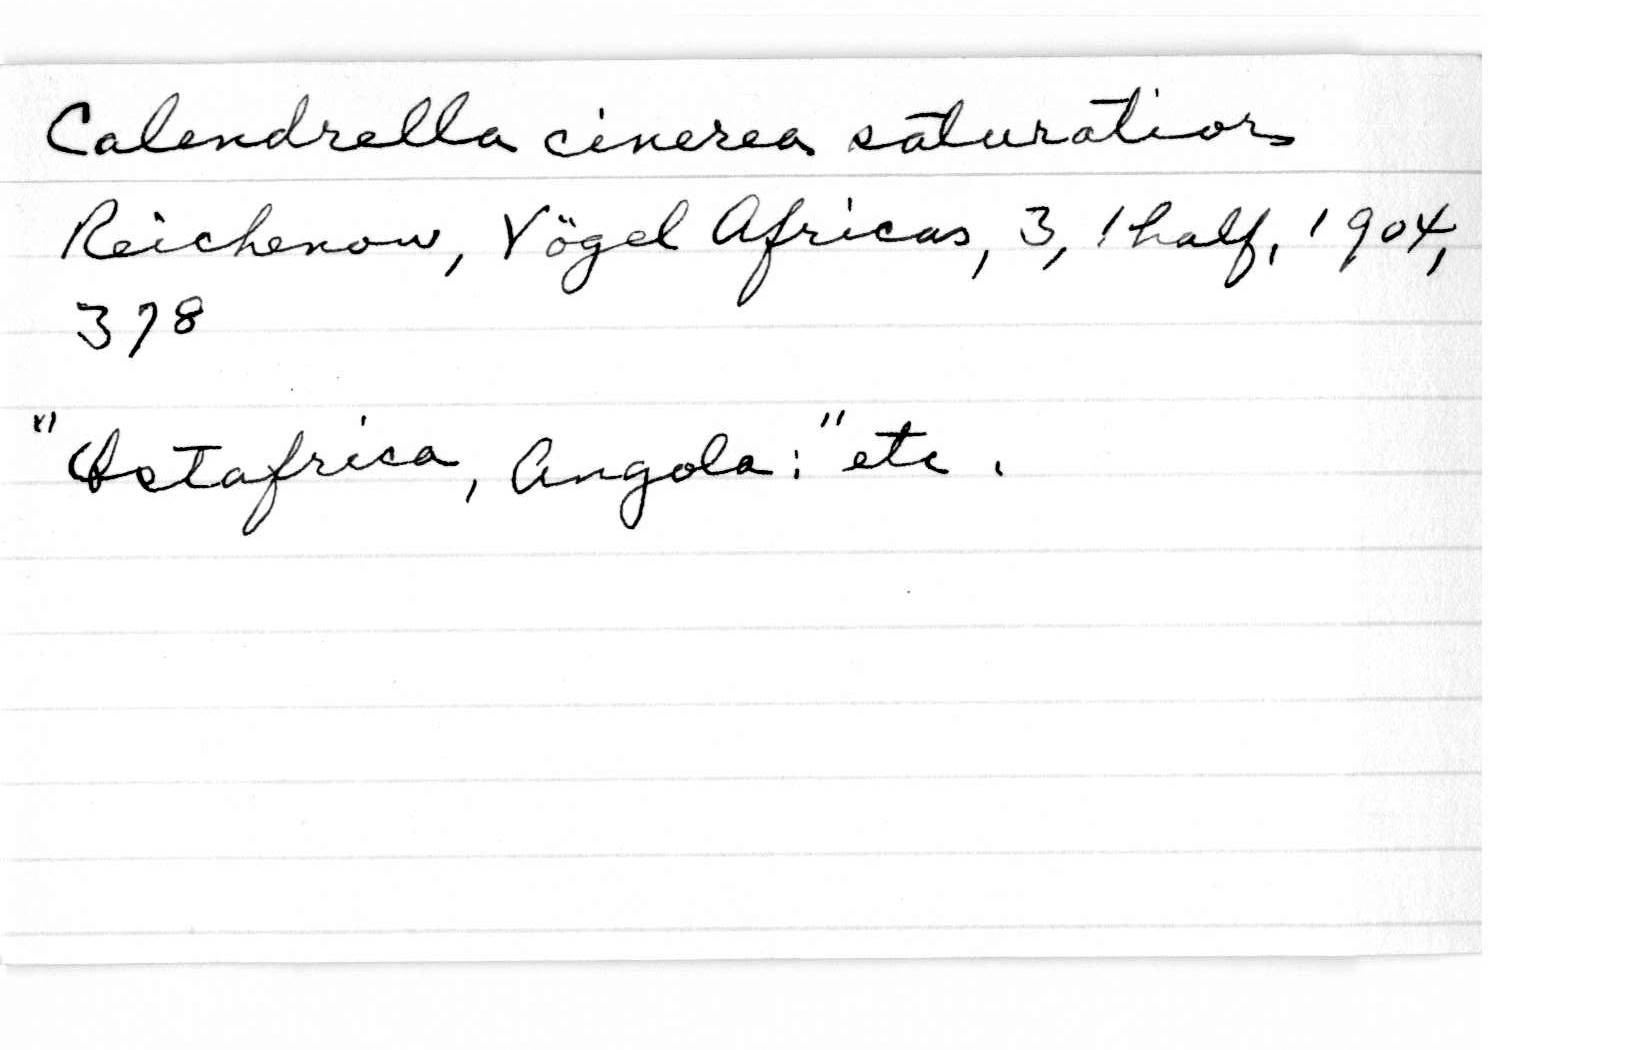 Calendrella cinerea saturatior
Reichenow, Vögel Africas, 3, 1 half, 1904,
378
"Ostafrica, Angola:" etc.